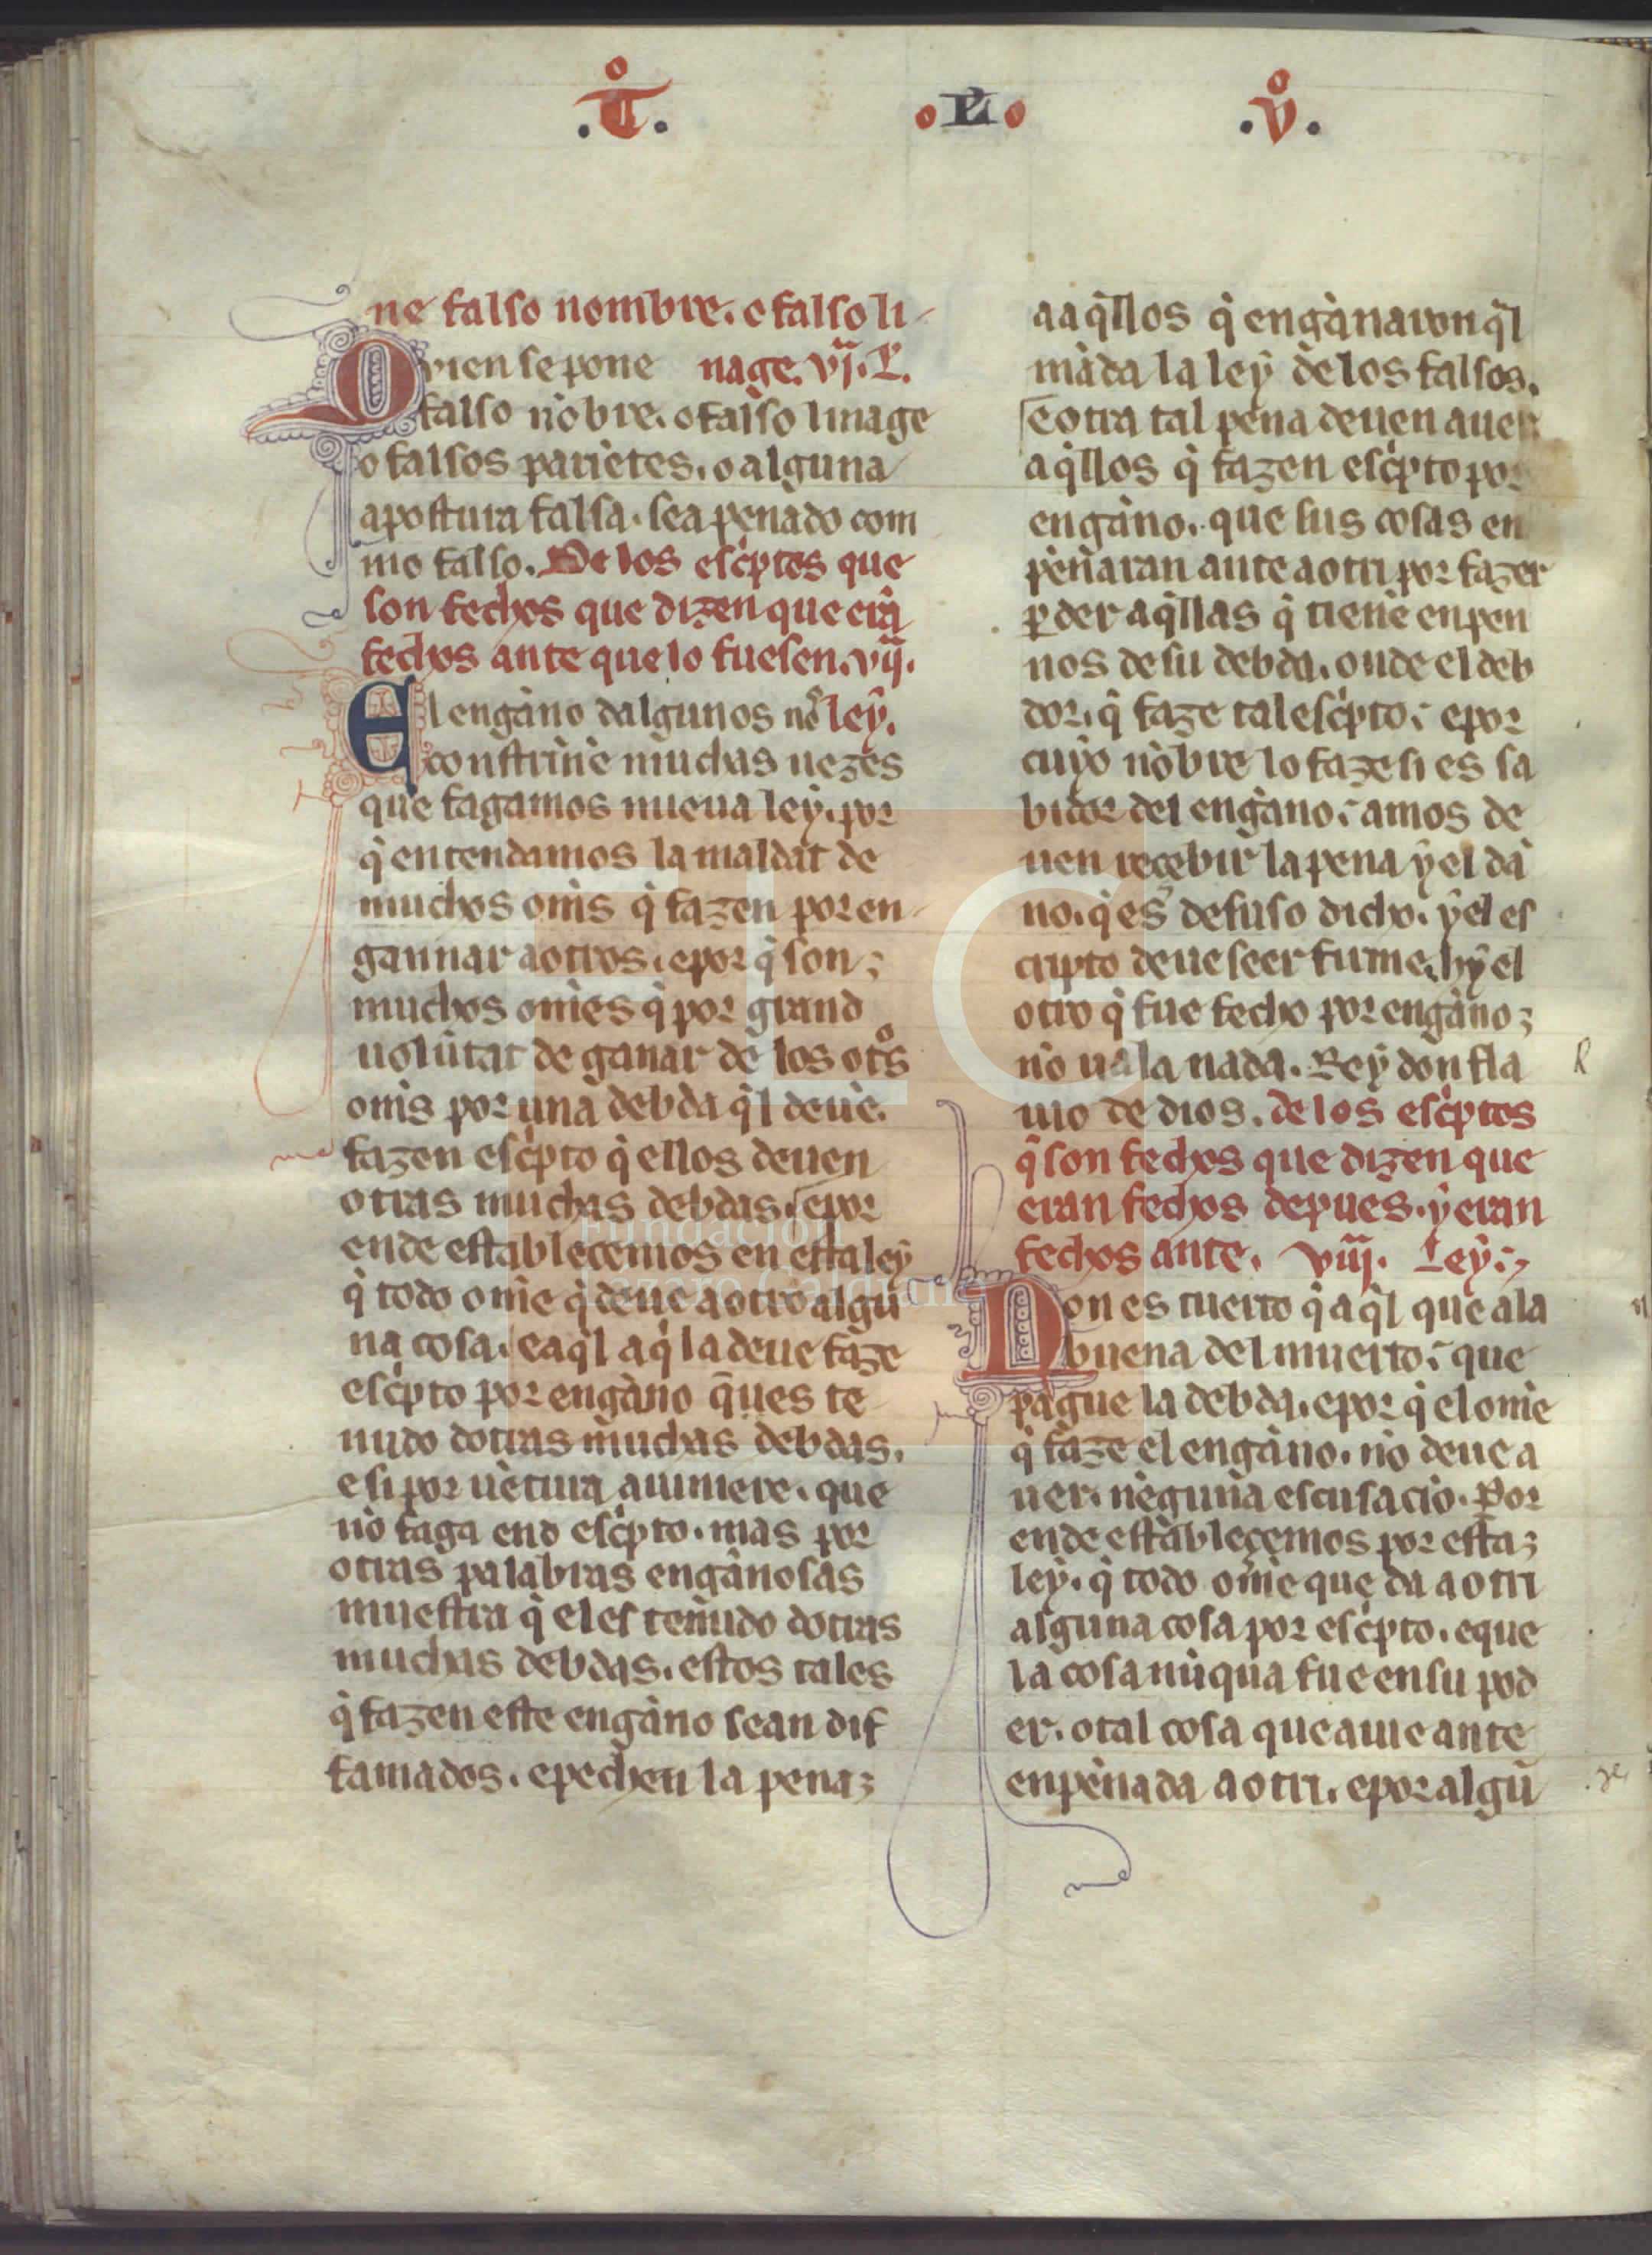 .T̊. .L. .v̊.
ne falso nombre. o falso li
Quien se pone nage. vj. L.
falso nõbre. o falso linage
o falsos pariẽtes. o alguna
apostura falsa. sea penado com
mo falso. De los esc̃ptos que
son fechos que dizen que erã
fechos ante que lo fuesen. vij.
El engãno dalgunos nõs ley.
constrinẽ muchas uezes
que fagamos nueua ley. por
q̃ entendamos la maldat de
muchos om̃s q̃ fazen por en
gannar a otros. e por q̃ son
muchos om̃es q̃ por grand
uolũtat de ganar de los otr̃os
om̃s por una debda q̃l deuẽ.
fazen esc̃pto q̃ ellos deuen
otras muchas debdas. e por
ende establecemos en esta ley
q̃ todo om̃e q̃ deue a otro algũ
na cosa. e aq̃l a q̃ la deue faze
esc̃pto por engãno q̃ues te
nudo dotras muchas debdas.
e si por uẽtura auiniere. que
nõ faga end esc̃pto. mas por
otras palabras engãnosas
muestra q̃ el es tenudo dotras
muchas debdas. estos tales
q̃ fazen este engãno sean dif
famados. e pechen la pena
a aq̃llos q̃ engãnaron q̃l
mãda la ley de los falsos.
e otra tal pena deuen auer
aq̃llos q̃ fazen esc̃pto por
engãno. que sus cosas en
pẽnaran ante a otri por fazer
p̱der aq̃llas q̃ tienẽ en pen
nos de su debda. onde el deb
dor. q̃ faze tal esc̃pto. e por
cuyo nõbre lo faze si es sa
bidor del engãno. amos de
uen recebir la pena y el dã
no. q̃ es de suso dicho. y el es
cripto deue seer firme. hy el
otro q̃ fue fecho por engãno
nõ uala nada. Rey don fla
uio de dios. de los esc̃ptos
q̃ son fechos que dizen que
eran fechos depues. y eran
fechos ante. viij. Ley.
Non es tuerto q̃ aq̃l que a la
buena del muerto. que
pague la debda. e por q̃ el om̃e
q̃ faze el engãno. nõ deue a
uer. nẽguna escusaciõ. Por
ende establecemos por esta
ley. q̃ todo om̃e que da a otri
alguna cosa por esc̃pto. e que
la cosa nũqua fue en su pod
er. o tal cosa que auie ante
enpẽnada a otri. e por algũ
Fundación
Lázaro Galdiano
FLG